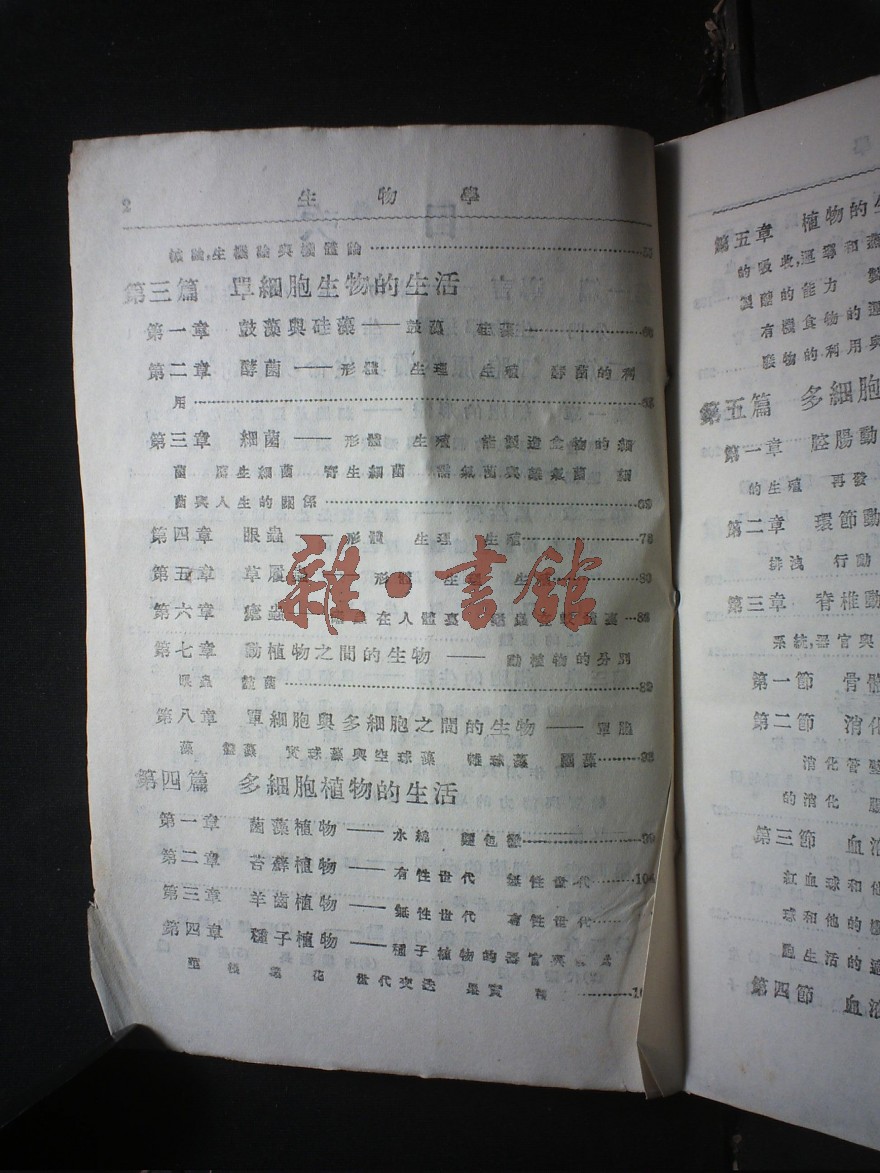 2
生物學
生機論與機體論
第三篇 單細胞生物的生活
第一章 鼓藻與硅藻——鼓藻 硅藻
第二章 酵菌——形體 生理 生殖 酵菌的利
用
第三章 細菌——形體 生殖 能製造食物的細
菌 腐生細菌 寄生細菌 細
菌與人生的關係 69
第四章 眼蟲——形體 生理 生殖 76
第五章 草履 形體 生 生 80
第六章 瘧蟲 在人體裏 裏 86
第七章 動植物之間的生物——動植物的分別
眼蟲 菌 89
第八章 單細胞與多細胞之間的生物——單胞
藻 實球藻與空球藻 團藻 92
第四篇 多細胞植物的生活
第一章 菌藻植物——水綿 麵包黴 99
第二章 苔蘚植物——有性世代 無性世代
第三章 羊齒植物——無性世代 有性世代
第四章 種子植物——種子植物的器官與
莖 根 葉 花 世代交迭 果實
雜·書館
第五章 植物的生
的吸收,運導和蒸
製造的能力
有機食物的運
廢物的利用與
第五篇 多細胞
第一章 腔腸動
的生殖 再發
第二章 環節動
排洩 行動
第三章 脊椎動
系統,器官與
第一節 骨骼
第二節 消化
消化管壁
的消化
第三節 血液
紅血球和他
球和他的
胞生活的適
第四節 血液